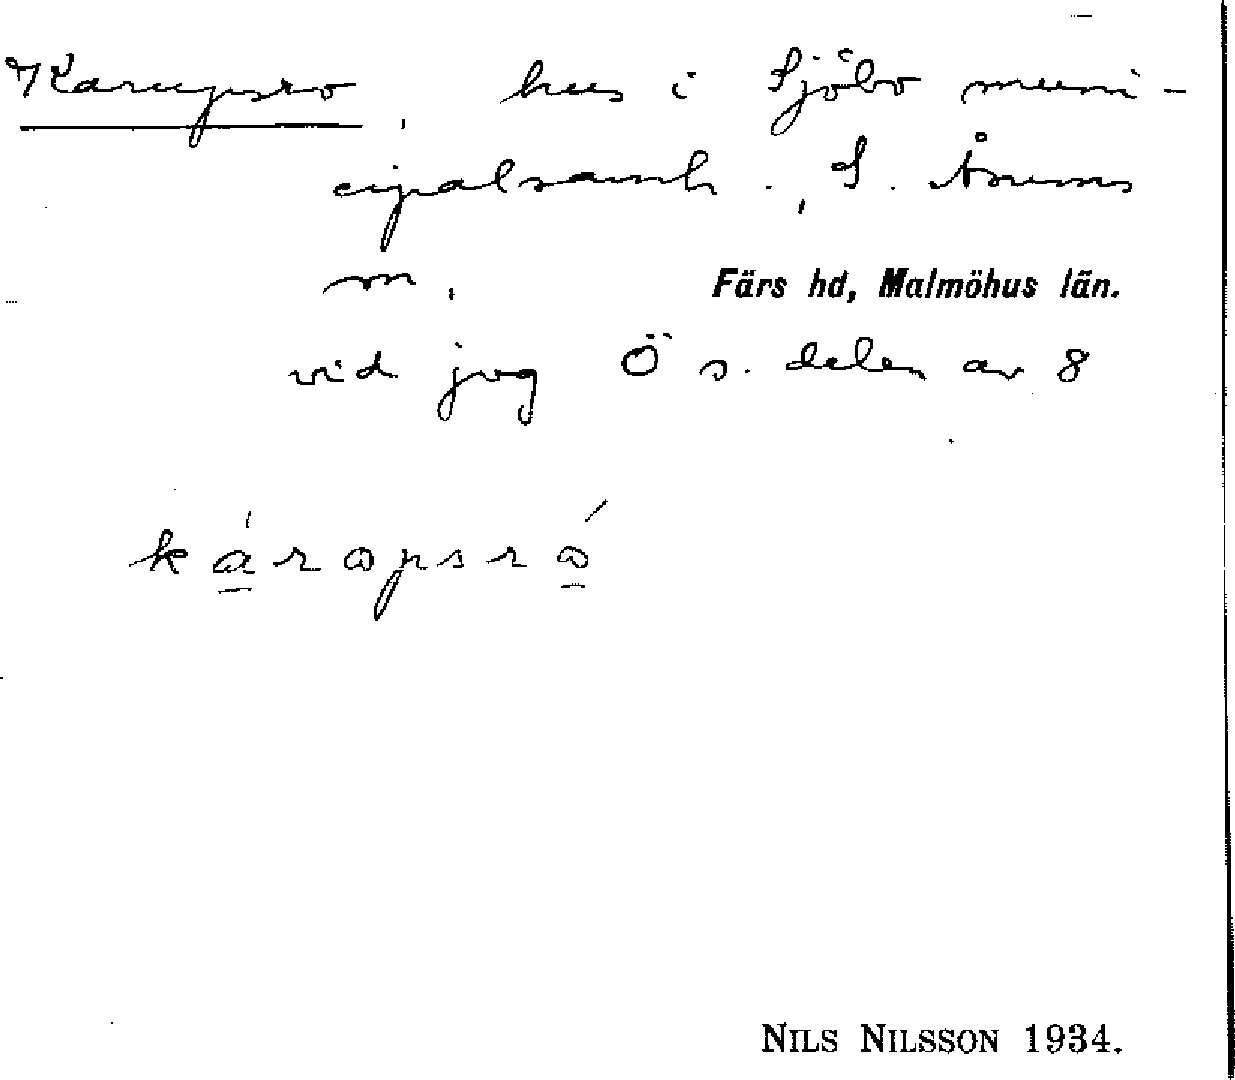 Karupsro, hus i Sjöbo muni-
cipalsamh., S. Åsums
m,
Färs hd, Malmöhus län.
vid jvg Ö s. delen av 8
káropsró
NILS NILSSON 1934.